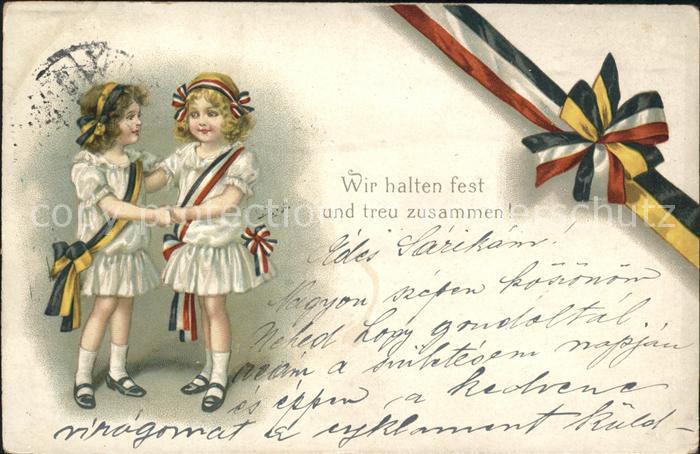 Wir halten fest
und treu zusammen!
copy protection Bilderschutz
Édes Sárikám!
Nagyon szépen köszönöm
Néked hogy gondoltál
reám a születésem napján
és éppen a kedvenc
virágomat a cyklament küld-